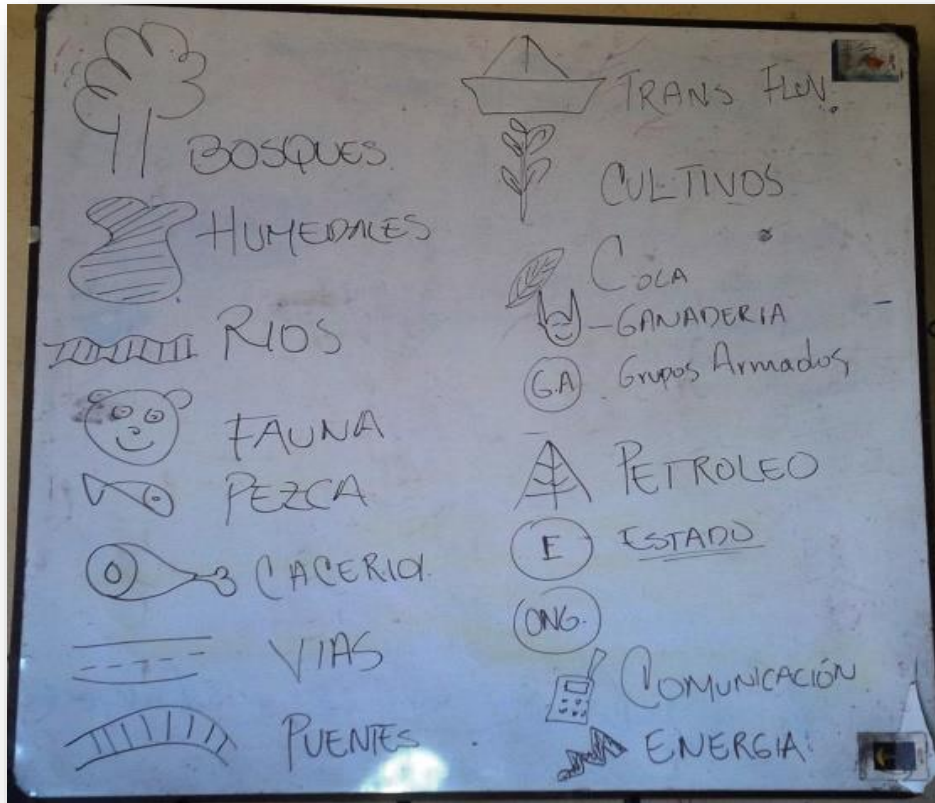 BOSQUES.
HUMEDALES
RIOS
FAUNA
PEZCA
CACERIA.
VIAS
PUENTES
TRANS FLUV.
CULTIVOS
COCA
-GANADERIA
G.A Grupos Armados,
PETROLEO
E ESTADO
ONG.
COMUNICACIÓN
ENERGIA